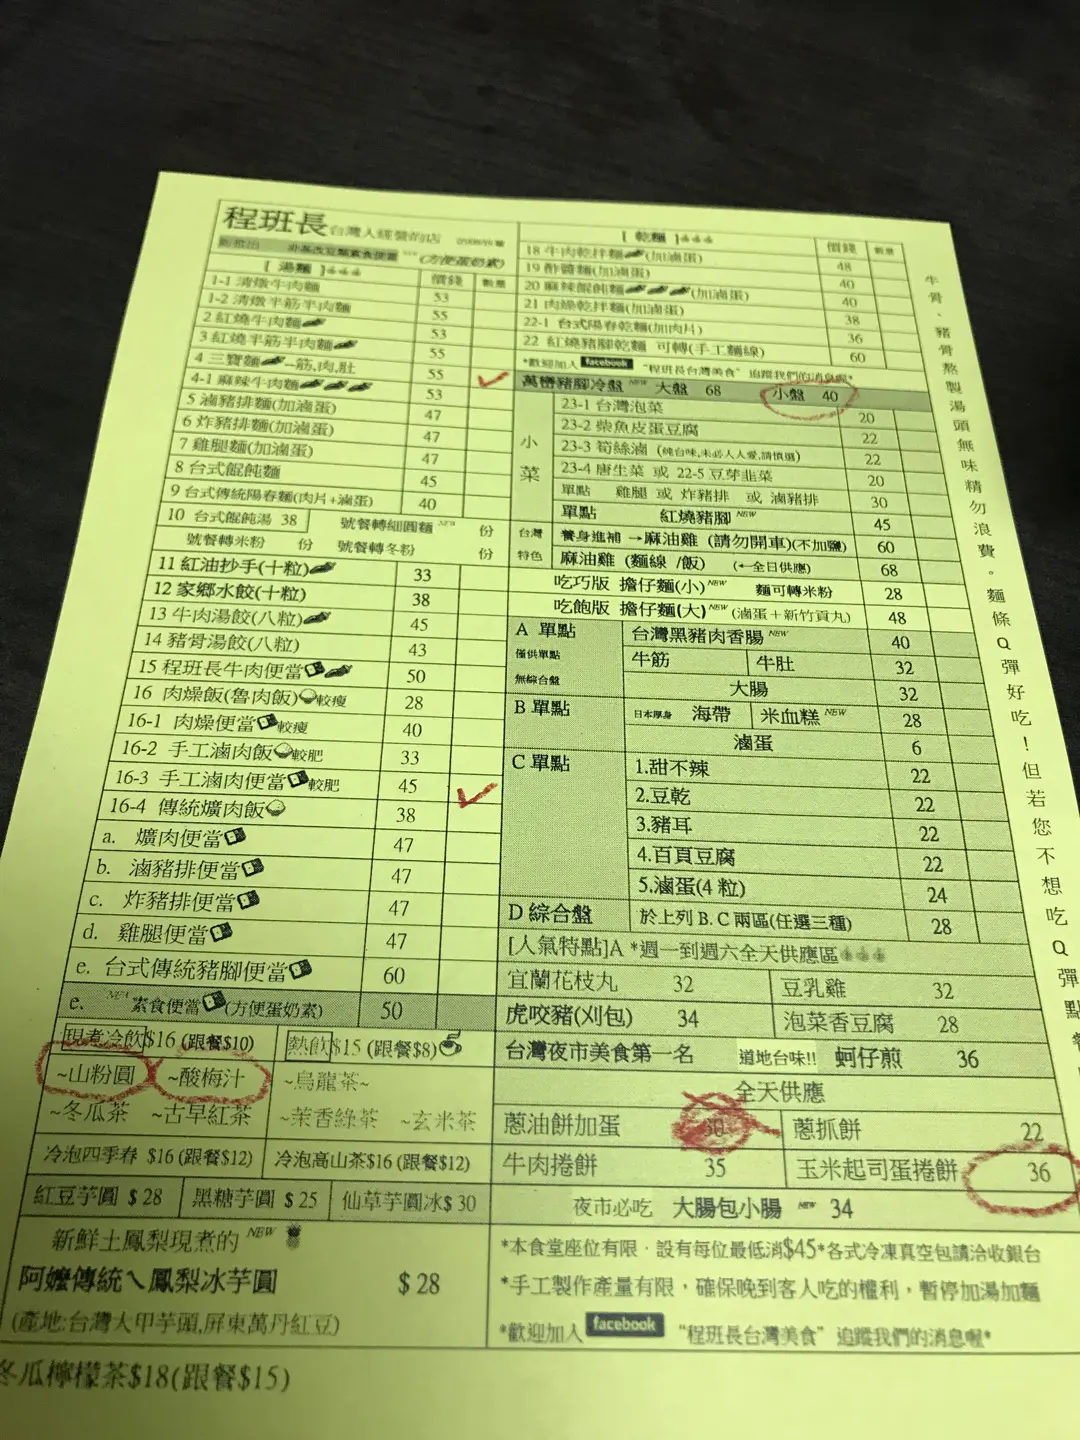 程班長 台灣人經營的店
新推出 非基改豆類素食便當 NEW (方便蛋奶素)
[ 湯麵 ] 價錢 數量
1-1 清燉牛肉麵 53
1-2 清燉半筋半肉麵 55
2 紅燒牛肉麵 53
3 紅燒半筋半肉麵 55
4 三寶麵 –筋,肉,肚 55
4-1 麻辣牛肉麵 53
5 滷豬排麵(加滷蛋) 47
6 炸豬排麵(加滷蛋) 47
7 雞腿麵(加滷蛋) 47
8 台式餛飩麵 45
9 台式傳統陽春麵(肉片+滷蛋) 40
10 台式餛飩湯 38 號餐轉細圓麵 NEW 份
號餐轉米粉 份 號餐轉冬粉 份
11 紅油抄手(十粒) 33
12 家鄉水餃(十粒) 38
13 牛肉湯餃(八粒) 45
14 豬骨湯餃(八粒) 43
15 程班長牛肉便當 50
16 肉燥飯(魯肉飯) 較瘦 28
16-1 肉燥便當 較瘦 40
16-2 手工滷肉飯 較肥 33
16-3 手工滷肉便當 較肥 45
16-4 傳統爌肉飯 38
a. 爌肉便當 47
b. 滷豬排便當 47
c. 炸豬排便當 47
d. 雞腿便當 47
e. 台式傳統豬腳便當 60
e. NEW 素食便當 (方便蛋奶素) 50
現煮冷飲$16 (跟餐$10) 熱飲$15 (跟餐$8)
~山粉圓 ~酸梅汁 ~烏龍茶~
~冬瓜茶 ~古早紅茶 ~茉香綠茶 ~玄米茶
冷泡四季春 $16 (跟餐$12) 冷泡高山茶$16 (跟餐$12)
紅豆芋圓 $ 28 黑糖芋圓 $ 25 仙草芋圓冰$ 30
新鮮土鳳梨現煮的 NEW
阿嬤傳統ㄟ鳳梨冰芋圓 $ 28
(產地:台灣大甲芋頭,屏東萬丹紅豆)
冬瓜檸檬茶$18(跟餐$15)
[ 乾麵 ] 價錢 數量
18 牛肉乾拌麵 (加滷蛋) 48
19 酢醬麵(加滷蛋) 40
20 麻辣餛飩麵 (加滷蛋) 40
21 肉燥乾拌麵(加滷蛋) 38
22-1 台式陽春乾麵(加肉片) 36
22 紅燒豬腳乾麵 可轉(手工麵線) 60
*歡迎加入 facebook "程班長台灣美食" 追蹤我們的消息喔*
萬巒豬腳冷盤 NEW 大盤 68 小盤 40
小菜
23-1 台灣泡菜 20
23-2 柴魚皮蛋豆腐 22
23-3 筍絲滷 (純台味,未必人人愛,請慎選) 22
23-4 唐生菜 或 22-5 豆芽韭菜 20
單點 雞腿 或 炸豬排 或 滷豬排 30
單點 紅燒豬腳 NEW 45
台灣特色
養身進補 →麻油雞 (請勿開車)(不加鹽) 60
麻油雞 (麵線 /飯) (←全日供應) 68
吃巧版 擔仔麵(小) NEW 麵可轉米粉 28
吃飽版 擔仔麵(大) NEW (滷蛋＋新竹貢丸) 48
A 單點 台灣黑豬肉香腸 NEW 40
僅供單點 牛筋 牛肚 32
無綜合盤 大腸 32
B 單點 日本厚身 海帶 米血糕 NEW 28
滷蛋 6
C 單點 1.甜不辣 22
2.豆乾 22
3.豬耳 22
4.百頁豆腐 22
5.滷蛋(4 粒) 24
D 綜合盤 於上列 B. C 兩區(任選三種) 28
[人氣特點]A *週一到週六全天供應區
宜蘭花枝丸 32 豆乳雞 32
虎咬豬(刈包) 34 泡菜香豆腐 28
台灣夜市美食第一名 道地台味!! 蚵仔煎 36
全天供應
蔥油餅加蛋 蔥抓餅 22
牛肉捲餅 35 玉米起司蛋捲餅 36
夜市必吃 大腸包小腸 NEW 34
*本食堂座位有限‧設有每位最低消$45*各式冷凍真空包請洽收銀台
*手工製作產量有限，確保晚到客人吃的權利，暫停加湯加麵
*歡迎加入 facebook "程班長台灣美食" 追蹤我們的消息喔*
牛骨、豬骨熬製湯頭無味精勿浪費。麵條Q彈好吃！但若您不想吃Q彈點